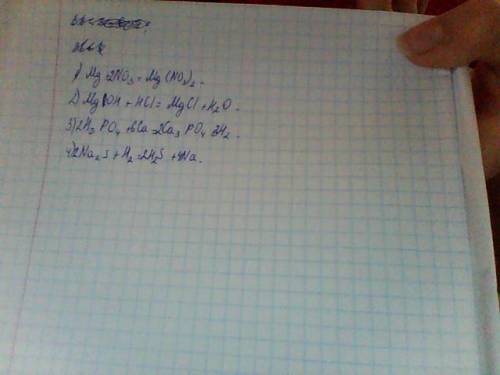 1) Mg+2NO₃=Mg(NO₃)₂.
2) Mg OH + HCl = MgCl + H₂O.
3) 2H₃ PO₄ +6Ca=2Ca₃ PO₄ 3H₂.
4) 2Na₂S + H₂=2H₂S + 4Na.